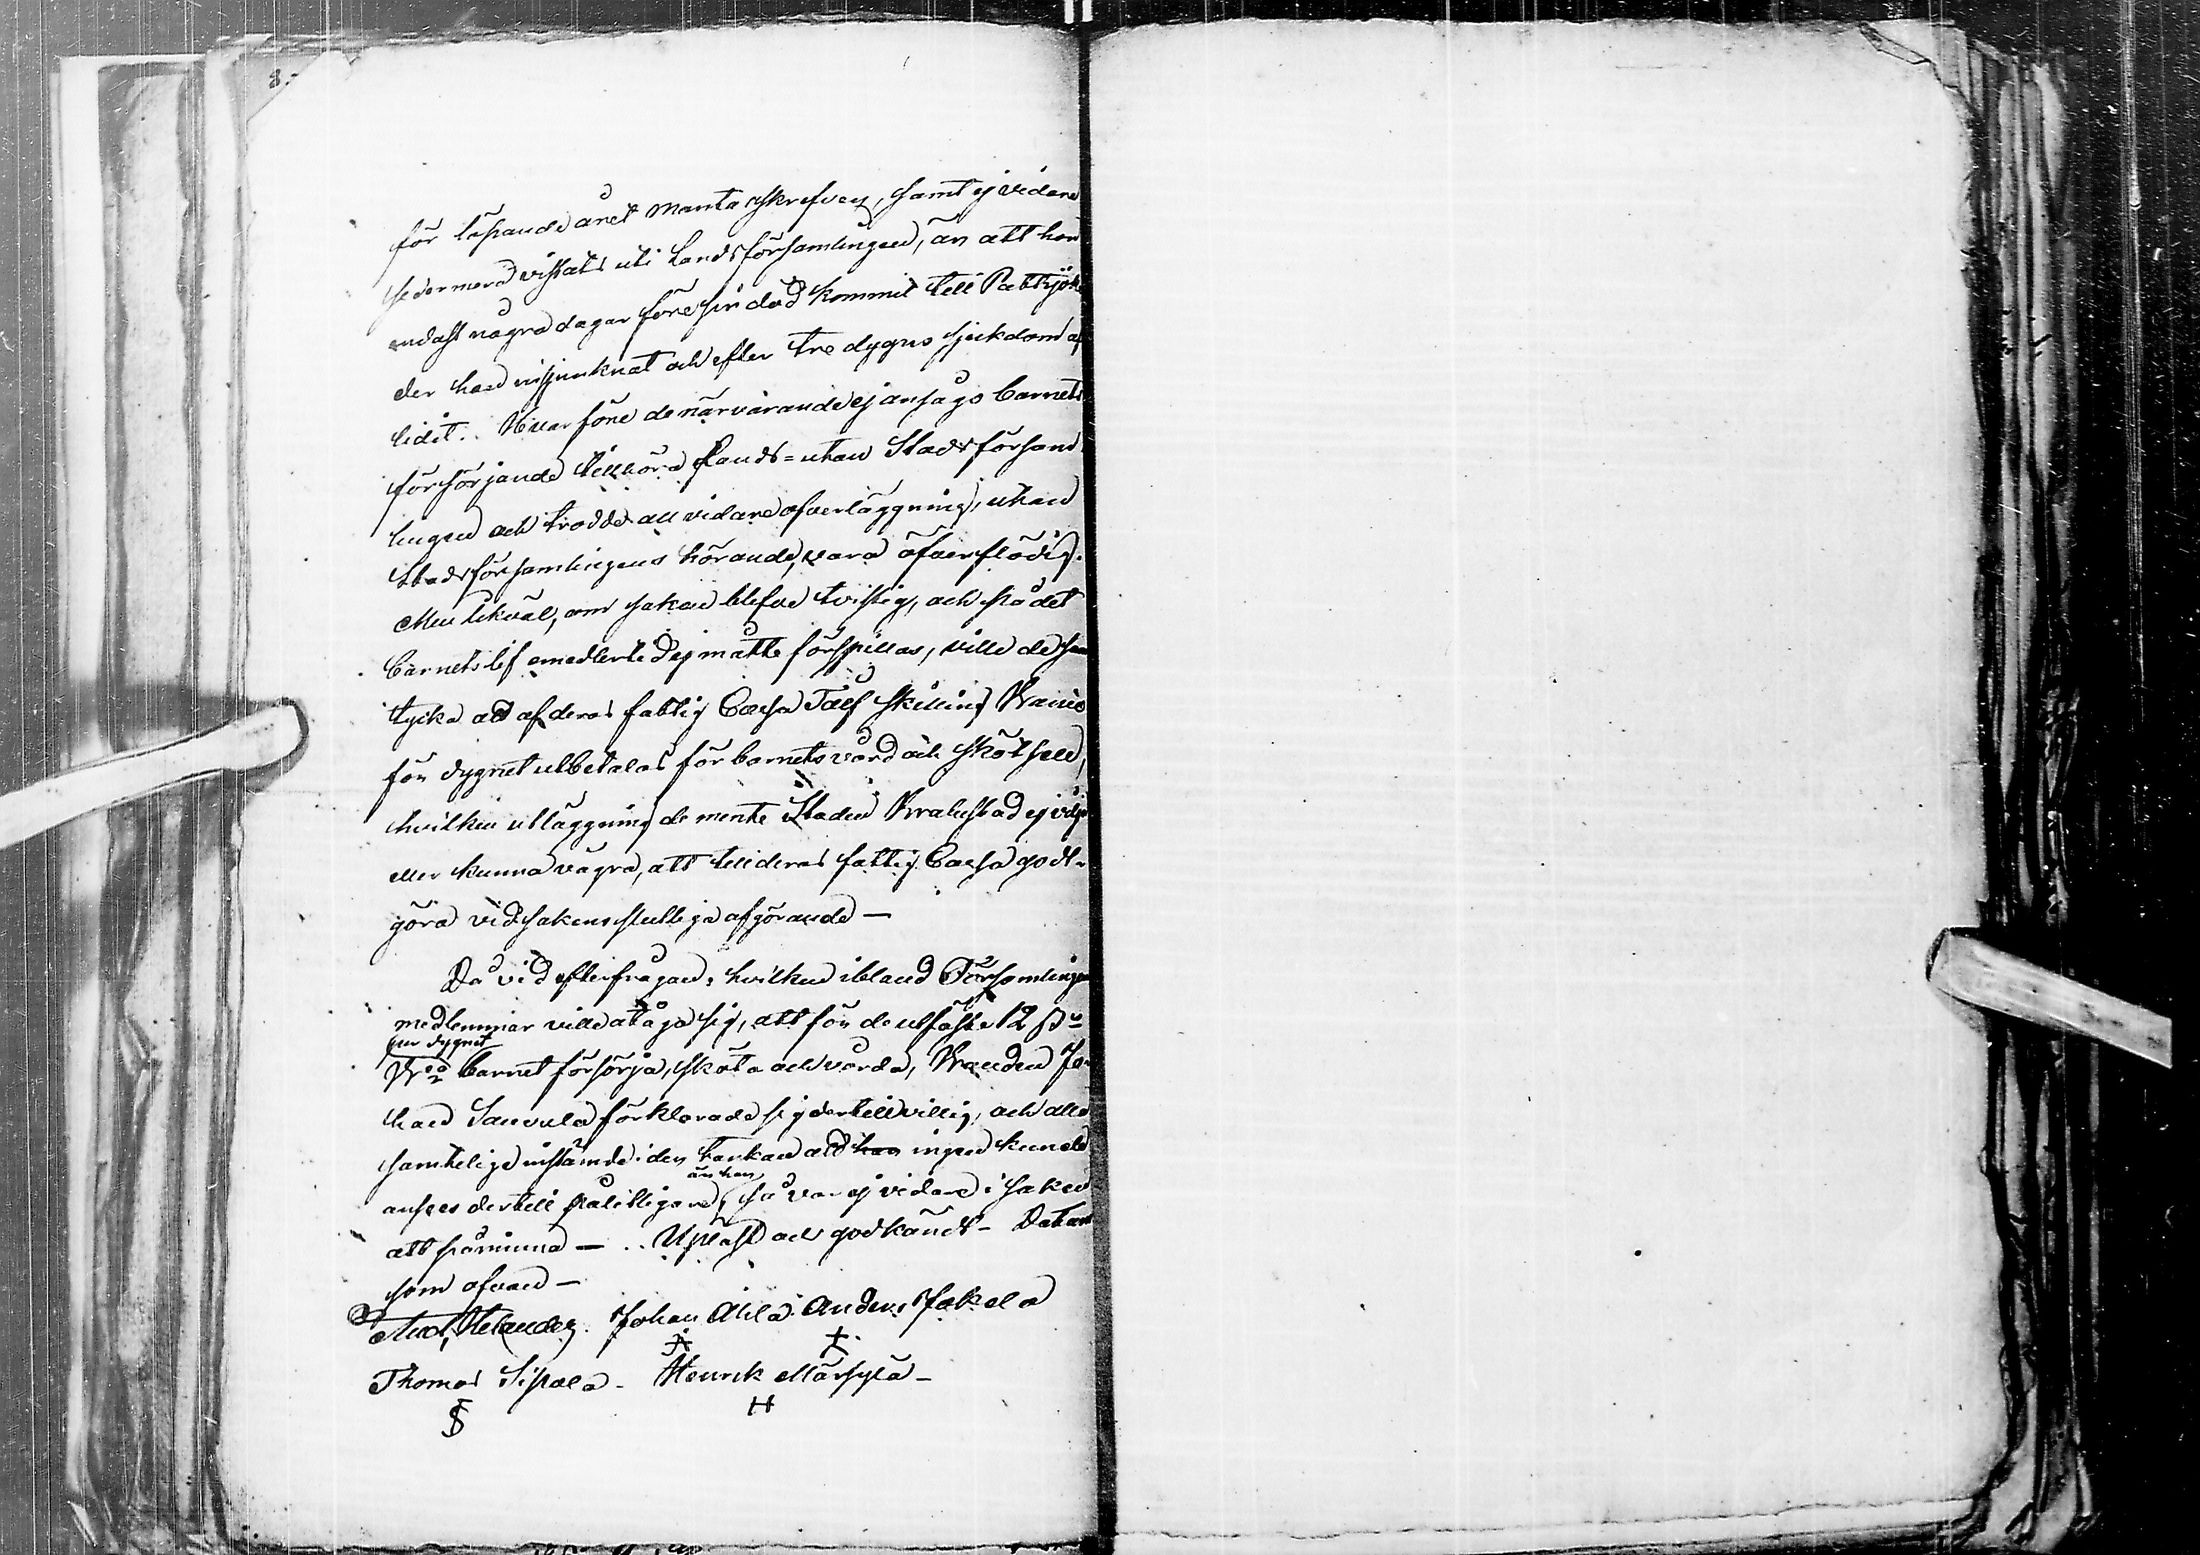 8.
för löpande året mantalskrefven, samt ej vidare
sedermera vistats uti Landsförsamlingen, än att hon
endast några dagar före sin död kommit till Pattijoki
der hon insjuknat och efter tre dygns sjukdom af-
lidit. Hvarföre de närvarande ej ansågo barnets
försörjande tillhöra Lands- utan Stadsförsam-
lingen och trodde all vidare öfverläggning, utan
Stadsförsamlingens hörande, vara öfverflödig.
Men likväl, om saken blefve tvistig, och på det
barnets lif emedlertid ej måtte förspillas, ville de sam-
tycka att af deras fattig Cassa Tolf skilling Banco
för dygnet utbetalas för barnets vård och skötsel,
hvilken utläggning de mente Staden Brahestad ej vilja
eller kunna vägra, att till deras fattig Cassa godt-
göra vid sakens slutliga afgörande —
Då vid efterfrågan, hvilken ibland Församlingens
medlemmar ville åtaga sig, att för de utfäste 12 s
per dygnet
Bco barnet försörja, sköta och vårda, Bonden Jo-
han Sauvula förklarade sig dertill villig, och alla
samtelige instämde i den tankan att han ingen kunde
än han
anses dertill pålitligare, så var ej vidare i saken
att påminna — Upläst och godkändt - Datum
som ofvan —
And, Helander. Johan Ahla Anders Jokela
Thomas Sipola - Henrik Märsylä -
S H